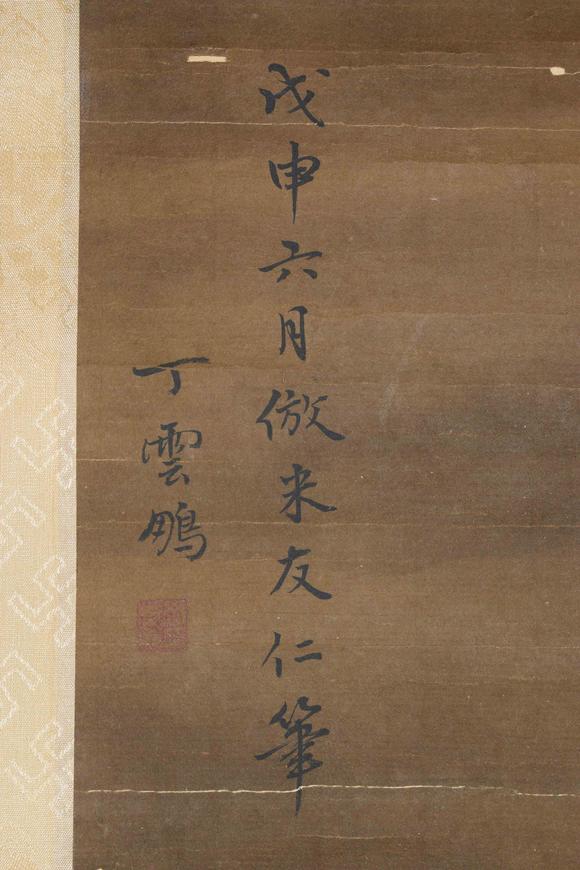 戊申六月倣米友仁筆
丁雲鵬